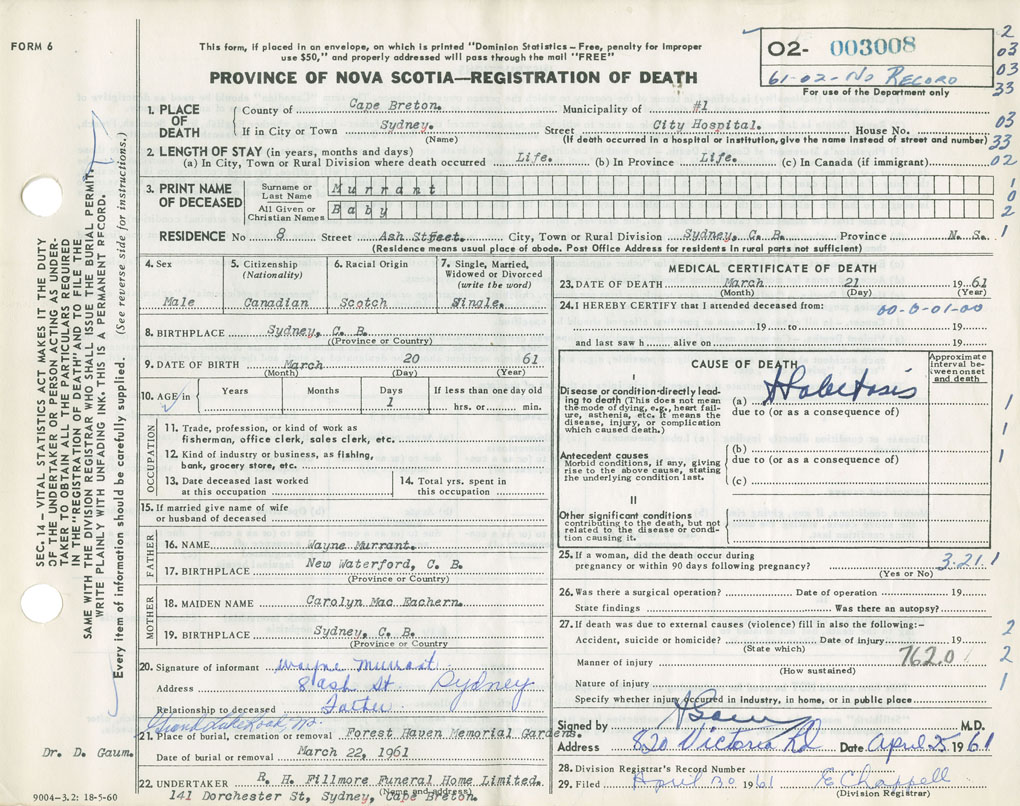 FORM 6
This form, if placed in an envelope, on which is printed "Dominion Statistics – Free, penalty for improper
use $50," and properly addressed will pass through the mail "FREE"
PROVINCE OF NOVA SCOTIA—REGISTRATION OF DEATH
02- 003008
61-02-No RECORD
For use of the Department only
2
03
03
33
03
33
02
1
0
2
1
SEC. 14 – VITAL STATISTICS ACT MAKES IT THE DUTY
OF THE UNDERTAKER OR PERSON ACTING AS UNDER-
TAKER TO OBTAIN ALL THE PARTICULARS REQUIRED
IN THE "REGISTRATION OF DEATH" AND TO FILE THE
SAME WITH THE DIVISION REGISTRAR WHO SHALL ISSUE THE BURIAL PERMIT.
WRITE PLAINLY WITH UNFADING INK. THIS IS A PERMANENT RECORD.
Every item of information should be carefully supplied. (See reverse side for instructions.)
1. PLACE OF DEATH
County of Cape Breton. Municipality of #1
If in City or Town Sydney. Street City Hospital. House No.
(Name) (If death occurred in a hospital or institution, give the name instead of street and number)
2. LENGTH OF STAY (in years, months and days)
(a) In City, Town or Rural Division where death occurred Life. (b) In Province Life. (c) In Canada (if immigrant)
3. PRINT NAME OF DECEASED
Surname or Last Name Murrant
All Given or Christian Names Baby
RESIDENCE No 8 Street Ash Street. City, Town or Rural Division Sydney, C. B. Province N. S.
(Residence means usual place of abode. Post Office Address for residents in rural parts not sufficient)
4. Sex
Male
5. Citizenship (Nationality)
Canadian
6. Racial Origin
Scotch
7. Single, Married, Widowed or Divorced (write the word)
Single.
8. BIRTHPLACE Sydney, C. B.
(Province or Country)
9. DATE OF BIRTH March 20 61
(Month) (Day) (Year)
10. AGE in
Years Months Days If less than one day old
1 hrs. or min.
OCCUPATION
11. Trade, profession, or kind of work as
fisherman, office clerk, sales clerk, etc.
12. Kind of industry or business, as fishing,
bank, grocery store, etc.
13. Date deceased last worked
at this occupation
14. Total yrs. spent in
this occupation
15. If married give name of wife
or husband of deceased
FATHER
16. NAME Wayne Murrant.
17. BIRTHPLACE New Waterford, C. B.
(Province or Country)
MOTHER
18. MAIDEN NAME Carolyn Mac Eachern.
19. BIRTHPLACE Sydney, C. B.
(Province or Country)
20. Signature of informant Wayne Murrant.
Address 8 Ash St. Sydney
Relationship to deceased Father.
Grand Lake Road,
21. Place of burial, cremation or removal Forest Haven Memorial Gardens.
Date of burial or removal March 22, 1961
Dr. D. Gaum.
22. UNDERTAKER R. H. Fillmore Funeral Home Limited.
(Name and address)
141 Dorchester St, Sydney, Cape Breton.
9004-3.2: 18-5-60
MEDICAL CERTIFICATE OF DEATH
23. DATE OF DEATH March 21 1961
(Month) (Day) (Year)
24. I HEREBY CERTIFY that I attended deceased from:
00-0-01-00
19 to 19
and last saw h alive on 19
CAUSE OF DEATH
Approximate interval between onset and death
I
Disease or condition directly lead-
ing to death (This does not mean
the mode of dying, e.g., heart fail-
ure, asthenia, etc. It means the
disease, injury, or complication
which caused death.)
(a)
due to (or as a consequence of)
Antecedent causes
Morbid conditions, if any, giving
rise to the above cause, stating
the underlying condition last.
(b)
due to (or as a consequence of)
(c)
II
Other significant conditions
contributing to the death, but not
related to the disease or condi-
tion causing it.
1
1
1
1
25. If a woman, did the death occur during
pregnancy or within 90 days following pregnancy? 3-21. 1
(Yes or No)
26. Was there a surgical operation? Date of operation 19
State findings Was there an autopsy?
27. If death was due to external causes (violence) fill in also the following:–
2
Accident, suicide or homicide? Date of injury 19
(State which)
762.0
Manner of injury 2
(How sustained)
Nature of injury 1
Specify whether injury occurred in industry, in home, or in public place
Signed by M.D.
Address 820 Victoria Rd Date April 25 1961
28. Division Registrar's Record Number
29. Filed April 30 1961 E Chappell
(Division Registrar)